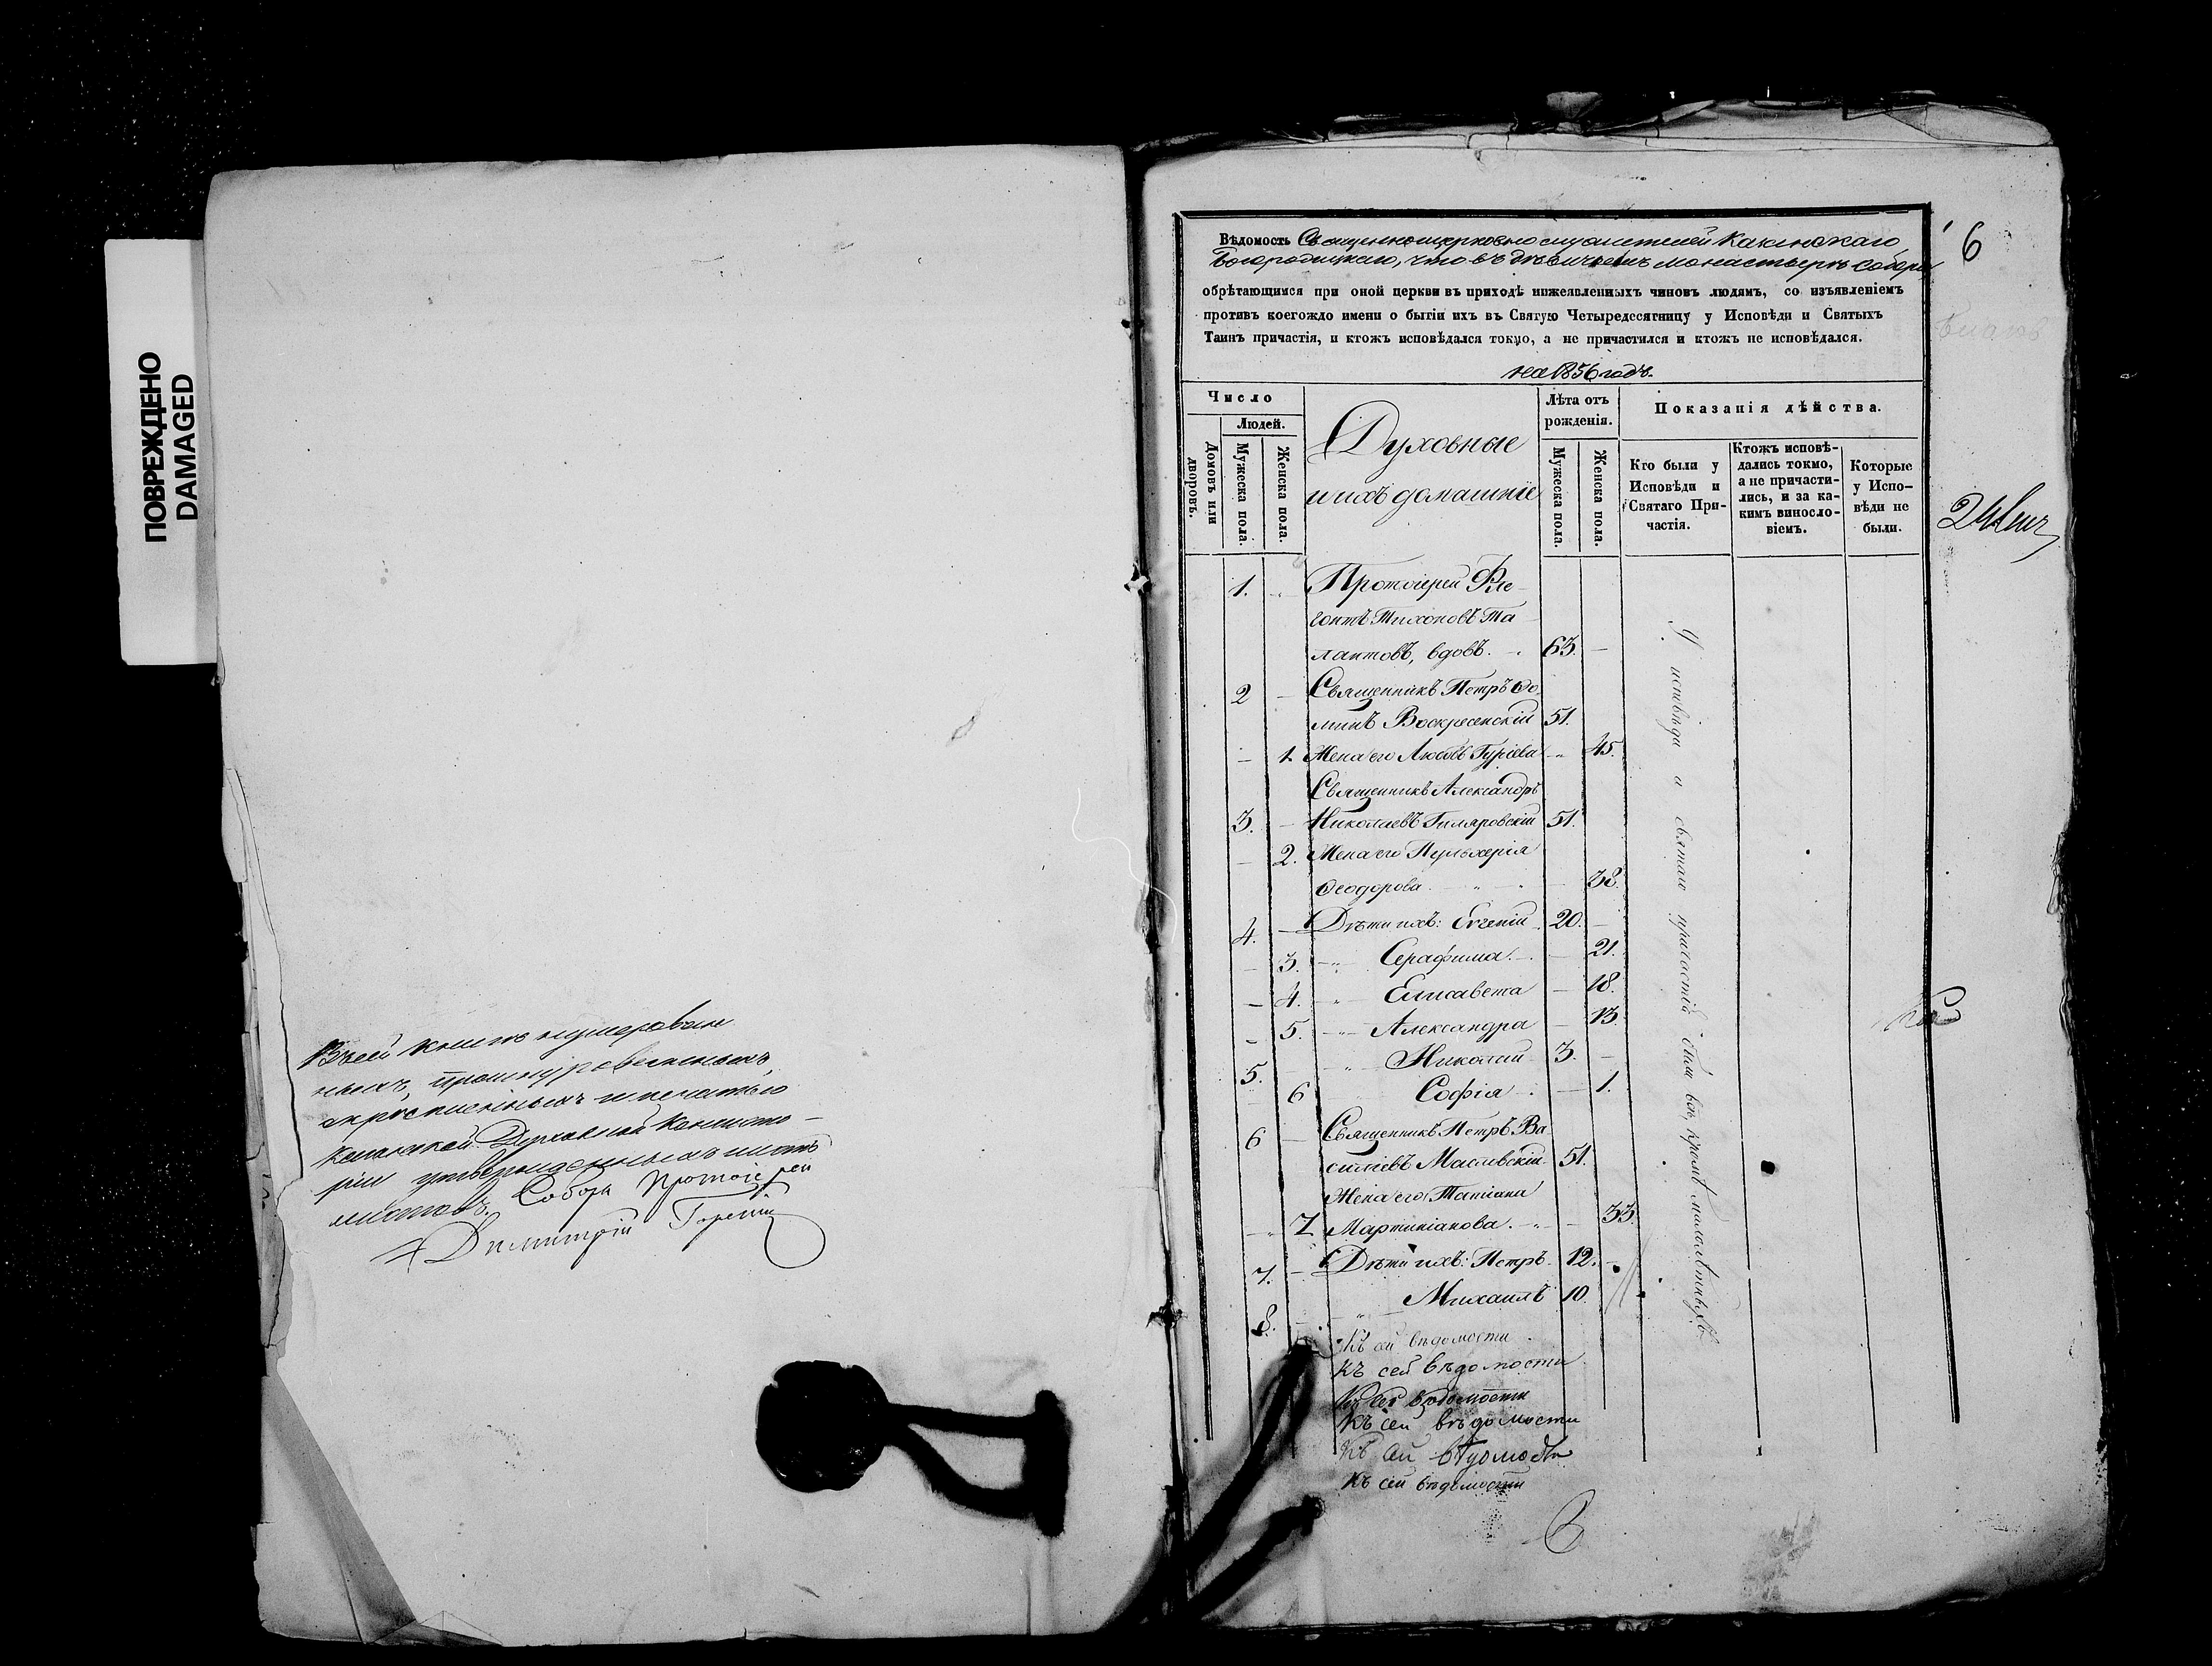 ПОВРЕЖДЕНО
DAMAGED
Въ сей книгѣ нумерован
ныхъ, прошнурованныхъ,
скрѣпленныхъ и печатью
Казанской Духовной Консисто-
ріи утвержденныхъ шесть
листовъ. Собора Протоіерей
Димитрій
6
Вѣдомость Священноцерковнослужителей Казанскаго
Богородицкаго, что въ дѣвичьемъ монастырѣ собора
обрѣтающимся при оной церкви въ приходѣ нижеявленныхъ чиновъ людямъ, со изъявленіемъ
противъ коегождо имени о бытіи ихъ въ Святую Четыредесятницу у Исповѣди и Святыхъ
Таинъ причастія, и ктожъ исповѣдался токмо, а не причастился и ктожъ не исповѣдался.
на 1856 годъ.
Число
Людей.
Домовъ или дворовъ.
Мужеска пола.
Женска пола.
Духовные
и ихъ домашніе
Лѣта отъ
рожденія.
Мужеска пола.
Женска пола.
Показанія дѣйства.
Кто были у
Исповѣди и
Святаго При-
частія.
Ктожъ исповѣ-
дались токмо,
а не причасти-
лись, и за ка-
кимъ винosло-
віемъ.
Которые
у Испо-
вѣди не
были.
1. Протоіерей Фле
гонтъ Тихоновъ Та
лантовъ, вдовъ. 63. —
2 — Священникъ Петръ Ѳо
минъ Воскресенскій 51.
— 1. Жена его Любовь Гурьева 45.
Священникъ Александръ
3. — Николаевъ Гиляровскій 51.
— 2. Жена его Пульхерія
Ѳеодорова. — 38.
4. — Дѣти ихъ: Евгеній 20. —
— 3. Серафима. — 21.
— 4. Елисавета — 18.
— 5. Александра — 13.
5. Николай 3. —
6 Софія — 1.
6 — Священникъ Петръ Ва
силіевъ Масловскій 51.
Жена его Татіана
— 7 Мартиніанова. — 33.
7. — Дѣти ихъ: Петръ 12. —
8. Михаилъ 10
У исповѣди и святаго причастія были всѣ, кромѣ малолѣтныхъ
Къ сей вѣдомости
Къ сей вѣдомости
Къ сей вѣдомости
Къ сей вѣдомости
Къ сей вѣдомости
Къ сей вѣдомости